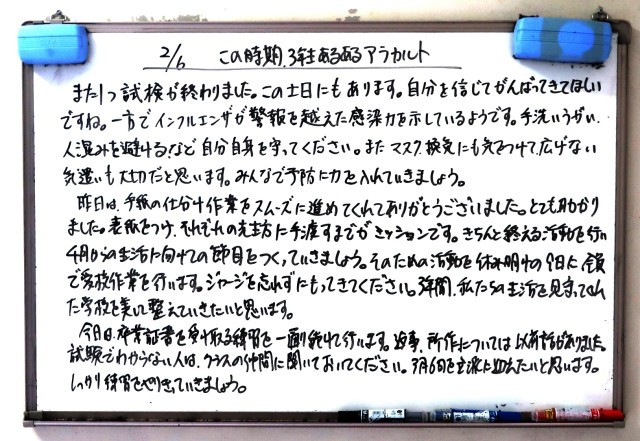 2/6 この時期、3年生あるあるアラカルト
また1つ試検が終わりました。この土日にもあります。自分を信じてがんばってきてほしい
ですね。一方でインフルエンザが警報を越えた感染力を示しているようです。手洗いうがい、
人混みを避けるなど自分自身を守ってください。またマスク、換気にも気をつけて、広げない
気遣いも大切だと思います。みんなで予防に力を入れていきましょう。
昨日は、手紙の仕分け作業をスムーズに進めてくれてありがとうございました。とても助かり
ました。表紙をつけ、それぞれの先生方に手渡すまでがミッションです。きちんと終える活動を行い
4月からの生活に向けての節目をつくっていきましょう。そのための活動を休み明けの9日に全員
で愛校作業を行います。ジャージを忘れずにもってきてください。3年間、私たちの生活を見守ってくれ
た学校を美しく整えていきたいと思います。
今日は、卒業証書を受け取る練習を一通り続けて行います。返事、所作については以前話がありました。
試験でわからない人は、クラスの仲間に聞いておいてください。3月6日を立派に迎えたいと思います。
しっかり練習をやりきっていきましょう。